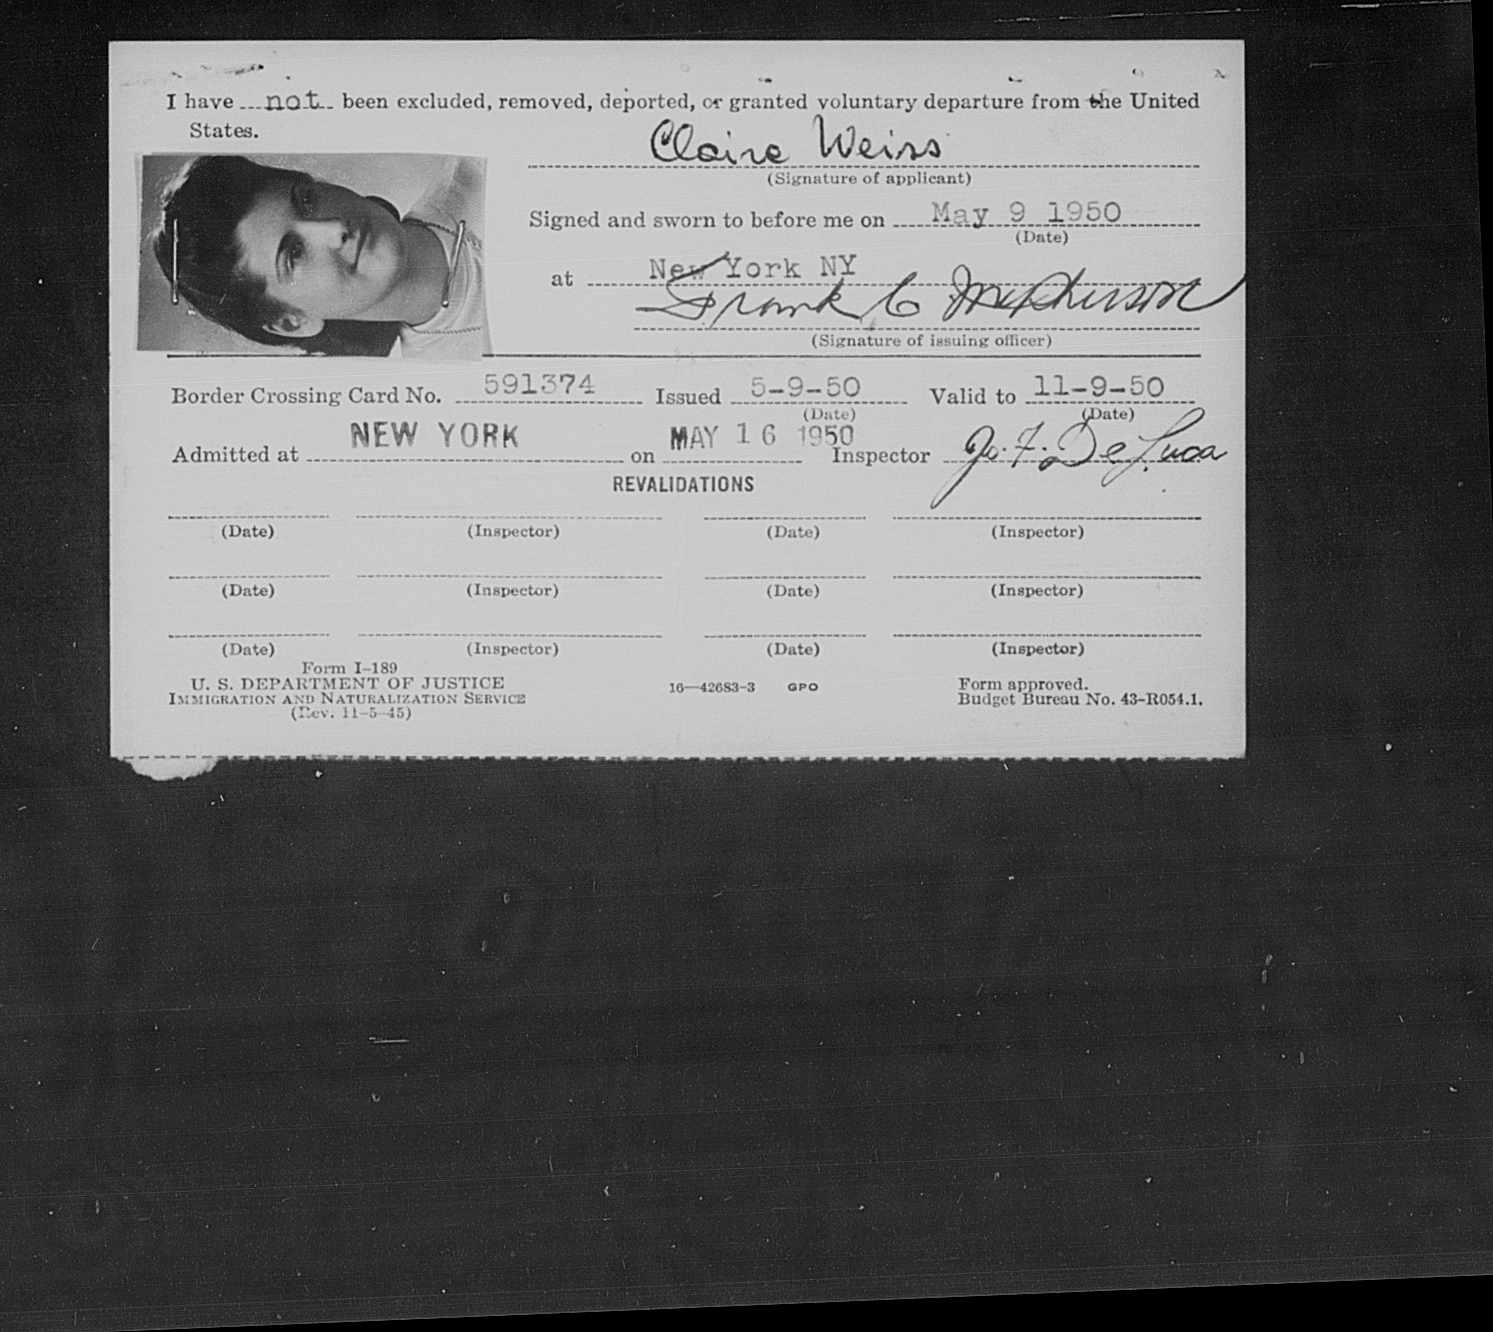 I have not been excluded, removed, deported, or granted voluntary departure from the United
States.
Claire Weiss
(Signature of applicant)
Signed and sworn to before me on May 9 1950
(Date)
at New York NY
Frank C McPherson
(Signature of issuing officer)
Border Crossing Card No. 591374 Issued 5-9-50 Valid to 11-9-50
(Date) (Date)
Admitted at NEW YORK on MAY 16 1950 Inspector Jo. F. De Luca
REVALIDATIONS
(Date) (Inspector) (Date) (Inspector)
(Date) (Inspector) (Date) (Inspector)
(Date) (Inspector) (Date) (Inspector)
Form I-189
U. S. DEPARTMENT OF JUSTICE
IMMIGRATION AND NATURALIZATION SERVICE
(Rev. 11-5-45)
16—42683-3 GPO
Form approved.
Budget Bureau No. 43-R054.1.